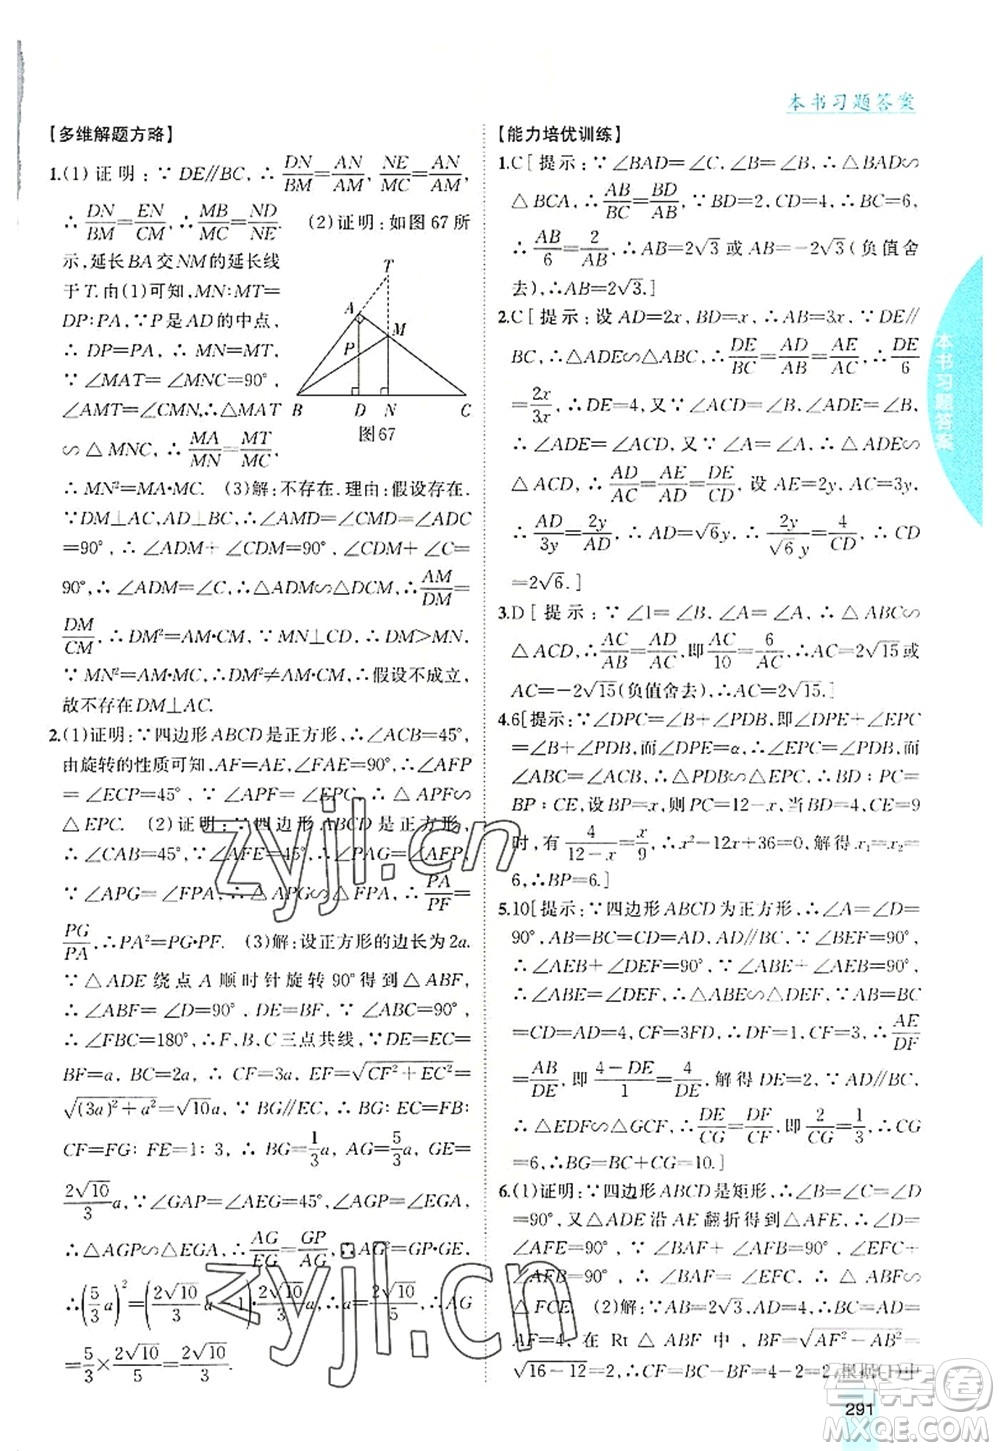 本书习题答案
【多维解题方略】
1.(1)证明:∵DE//BC,∴DN/BM=AN/AM,NE/MC=AN/AM,
∴DN/BM=EN/CM,∴MB/MC=ND/NE. (2)证明:如图67所
示,延长BA交NM的延长线
于T.由(1)可知,MN:MT=
DP:PA,∵P是AD的中点,
∴DP=PA,∴MN=MT,
∵∠MAT=∠MNC=90°,
∠AMT=∠CMN,∴△MAT
∽△MNC,∴MA/MN=MT/MC,
∴MN²=MA·MC. (3)解:不存在.理由:假设存在.
∵DM⊥AC,AD⊥BC,∴∠DMA=∠CMD=∠ADC
=90°,∴∠ADM+∠CDM=90°,∠CDM+∠C=
90°,∴∠ADM=∠C,∴△ADM∽△DCM,∴AM/DM=
DM/CM,∴DM²=AM·CM,∵MN⊥BC,∴DM>MN.
∵由(2)可知,MN²=AM·CM,∴假设不成立,
故不存在DM⊥AC.
2.(1)证明:∵四边形ABCD是正方形,∴∠ACB=45°,
由旋转的性质可知,AF=AE,∠FAE=90°,∴∠AFP
=∠ECP=45°,∵∠APF=∠EPC,∴△APF∽
△EPC. (2)证明:∵四边形ABCD是正方形,
∴∠CAB=45°,∵∠AFE=45°,∴∠PAG=∠AFP,
∵∠APG=∠FPA,∴△APG∽△FPA,∴PA/PF=
PG/PA,∴PA²=PG·PF. (3)解:设正方形的边长为2a.
∵△ADE绕点A顺时针旋转90°得到△ABF,
∴∠ABF=∠D=90°,DE=BF,∵∠ABC=90°,
∴∠FBC=180°,∴F,B,C三点共线,∵DE=EC=
BF=a,BC=2a,∴CF=3a,EF=√(CF²+EC²)=
√((3a)²+a²)=√10a,∵BG//EC,∴BG:EC=FB:
CF=FG:EF=1:3,∴BG=1/3a,AG=5/3a,GE=
2√10/3a,∵∠GAP=∠AEG=45°,∠AGP=∠EGA,
∴△AGP∽△EGA,∴AG/EG=GP/AG,∴AG²=GP·EG,
∴(5/3a)²=(2√10/3a-1)·2√10/3a,∴a=2√10/5,∴AG
=5/3×2√10/5=2√10/3.
T
A
M
P
B
D
N
C
图67
【能力培优训练】
1.C[提示:∵∠BAD=∠C,∠B=∠B,∴△BAD∽
△BCA,∴AB/BC=BD/AB,∵BD=2,CD=4,∴BC=6,
∴AB/6=2/AB,∴AB=2√3或AB=-2√3(负值舍
去),∴AB=2√3.]
2.C[提示:设AD=2x,BD=x,∴AB=3x,∵DE//
BC,∴△ADE∽△ABC,∴DE/BC=AD/AB=AE/AC,∴DE/6
=2x/3x,∴DE=4,又∵∠ACD=∠B,∠ADE=∠B,
∴∠ADE=∠ACD,又∵∠A=∠A,∴△ADE∽
△ACD,∴AD/AC=AE/AD=DE/CD,设AE=2y,AC=3y,
∴AD/3y=2y/AD,∴AD=√6y,∴2y/√6y=4/CD,∴CD
=2√6.]
3.D[提示:∵∠1=∠B,∠A=∠A,∴△ABC∽
△ACD,∴AC/AB=AD/AC,即AC/10=6/AC,∴AC=2√15或
AC=-2√15(负值舍去),∴AC=2√15.]
4.6[提示:∵∠DPC=∠B+∠PDB,即∠DPE+∠EPC
=∠B+∠PDB,而∠DPE=α,∴∠EPC=∠PDB,而
∠ABC=∠ACB,∴△PBD∽△EPC,∴BD:PC=
BP:CE,设BP=x,则PC=12-x,当BD=4,CE=9
时,有4/(12-x)=x/9,∴x²-12x+36=0,解得x₁=x₂=
6,∴BP=6.]
5.10[提示:∵四边形ABCD为正方形,∴∠A=∠D=
90°,AB=AD=BC=CD,AD//BC,∵BE⊥EF,
∴∠AEB+∠DEF=90°,∵∠AEB+∠ABE=90°,
∴∠DEF=∠ABE,∴△ABE∽△DEF,∵AB=BC
=CD=AD=4,CF=3FD,∴DF=1,CF=3,∴AE/DF
=AB/DE,即(4-DE)/1=4/DE,解得DE=2,∵AD//BC,
∴△EDF∽△GCF,∴DE/CG=DF/CF,即2/CG=1/3,∴CG
=6,∴BG=BC+CG=10.]
6.(1)证明:∵四边形ABCD是矩形,∴∠B=∠C=∠D
=90°,又∵△ADE沿AE翻折得到△AFE,∴∠D=
∠AFE=90°,∴∠AFB+∠EFC=90°,∠BAF+
∠AFB=90°,∴∠BAF=∠EFC,∴△ABF∽
△FCE. (2)解:∵AB=2√3,AD=4,∴AD=
AF=4,在Rt△ABF中,BF=√(AF²-AB²)=
√(16-12)=2,∴CF=BC-BF=4-2=2,根据(1)中
291
zyjl.cn
zyjl.cn
答案圈
本书习题答案